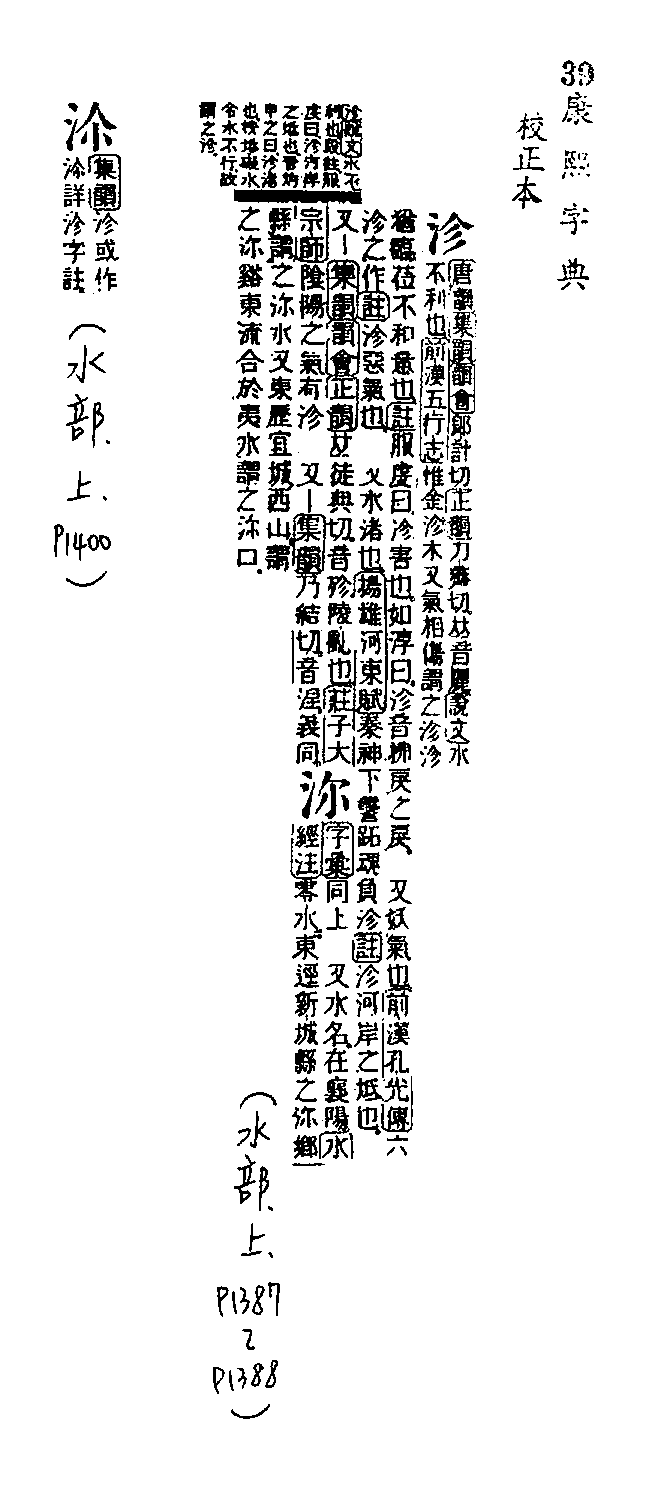 39
康熙字典
校正本
沴
唐韻集韻韻會郎計切正韻力霽切𠀤音麗說文水
不利也前漢五行志惟金沴木又氣相傷謂之沴沴
猶臨莅不和意也註服虔曰沴害也如淳曰沴音拂戾之戾 又妖氣也前漢孔光傳六
沴之作註沴惡氣也 又水渚也揚雄河東賦秦神下讋跖魂負沴註沴河岸之坻也
又丨集韻韻會正韻𠀤徒典切音殄陵亂也莊子大
宗師陰陽之氣有沴 又丨集韻乃結切音涅義同
沵
字彙同上 又水名在襄陽水
經注零水東逕新城縣之沵鄉
縣謂之沵水又東歷宜城西山謂
之沵谿東流合於夷水謂之沵口
沴說文水不
利也段註服
虔曰沴河岸
之坻也晉灼
申之曰沴渚
也按坻礙水
令水不行故
謂之沴
(水部.上.P1387乙P1388)
沵
集韻沴或作
沵詳沴字註
(水部.上.P1400)